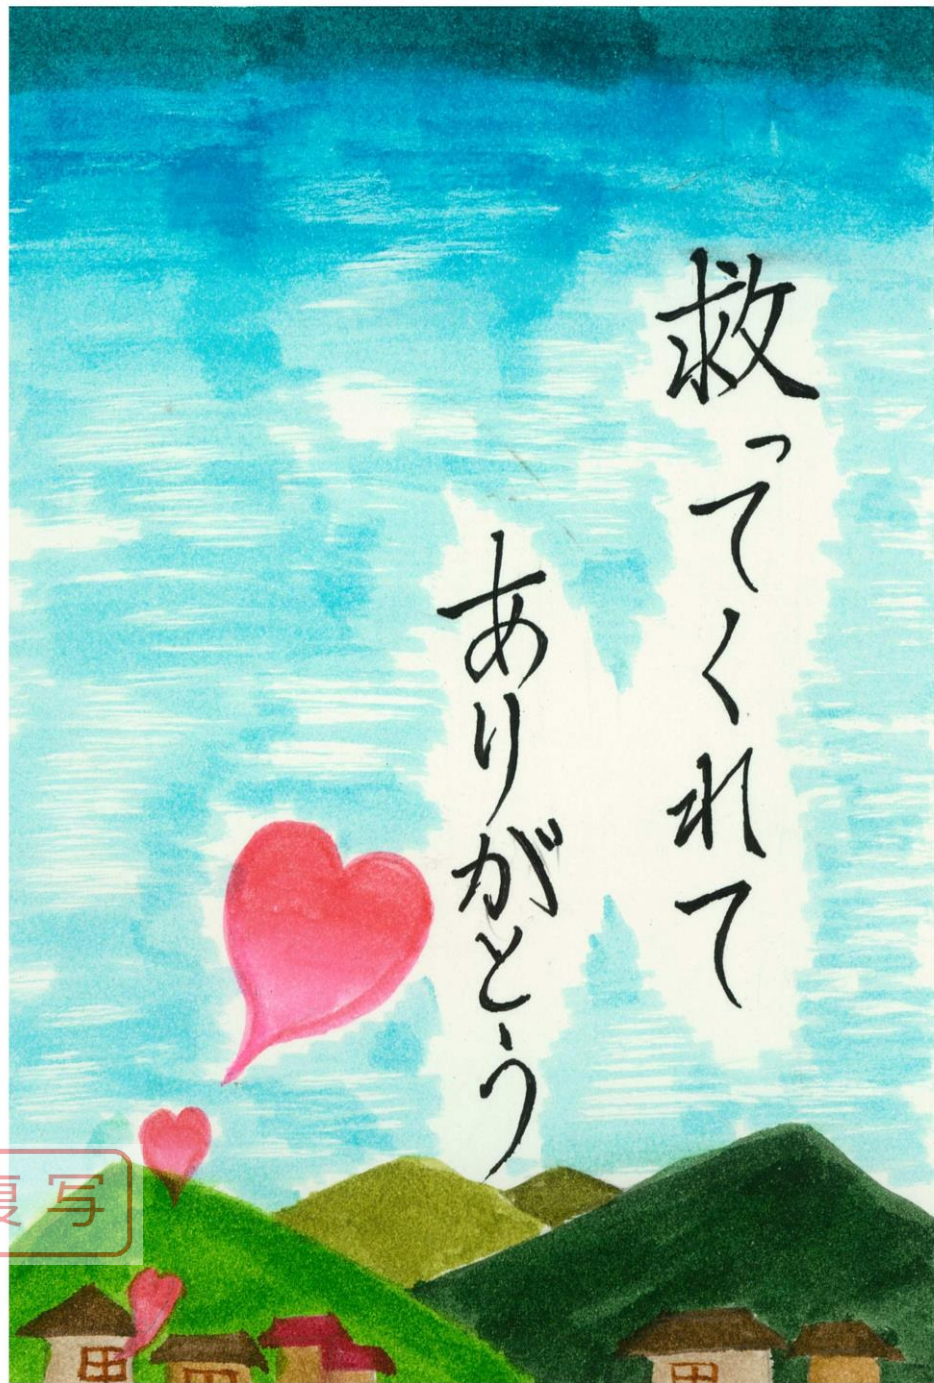 救ってくれて
ありがとう
複写